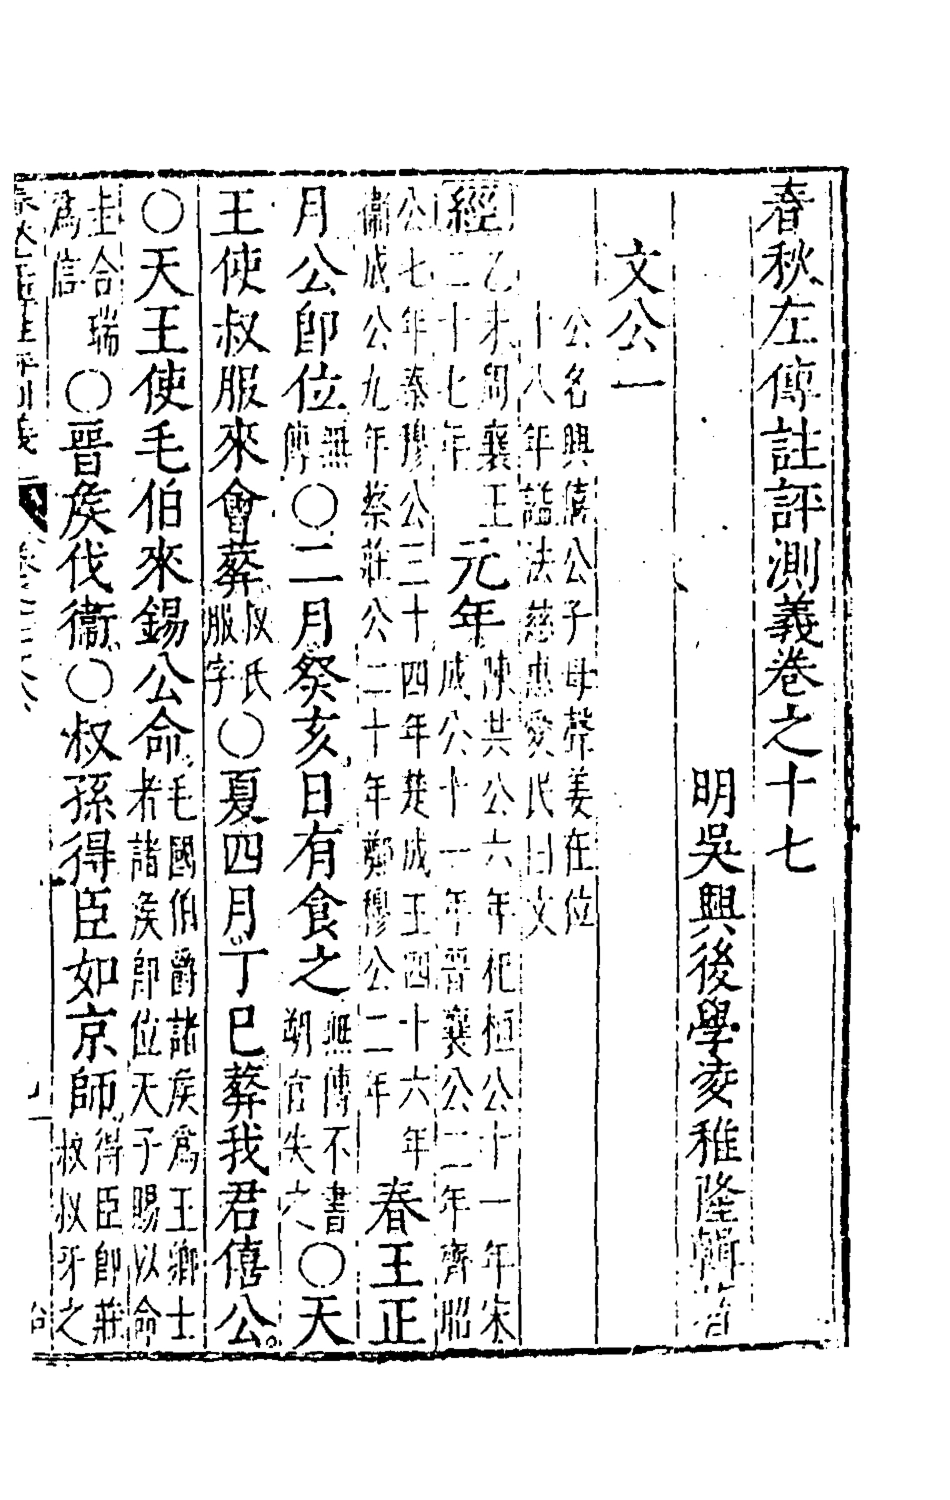 春秋左傳註評測義卷之十七
明吳興後學凌稚隆輯著
文公一
公名興僖公子母聲姜在位
十八年謚法慈惠愛民曰文
經乙未周襄王二十七年元年陳共公六年杞桓公十一年宋成公十一年晉襄公二年齊昭
公七年秦穆公三十四年楚成王四十六年衞成公九年蔡莊公二十年鄭穆公二年春王正
月公即位無傳○二月癸亥日有食之無傳不書朔官失之○天
王使叔服來會葬叔氏服字○夏四月丁巳葬我君僖公
○天王使毛伯來錫公命毛國伯爵諸矦爲王卿士者諸矦即位天子賜以命
圭合瑞爲信○晉矦伐衞○叔孫得臣如京師得臣即莊叔叔牙之